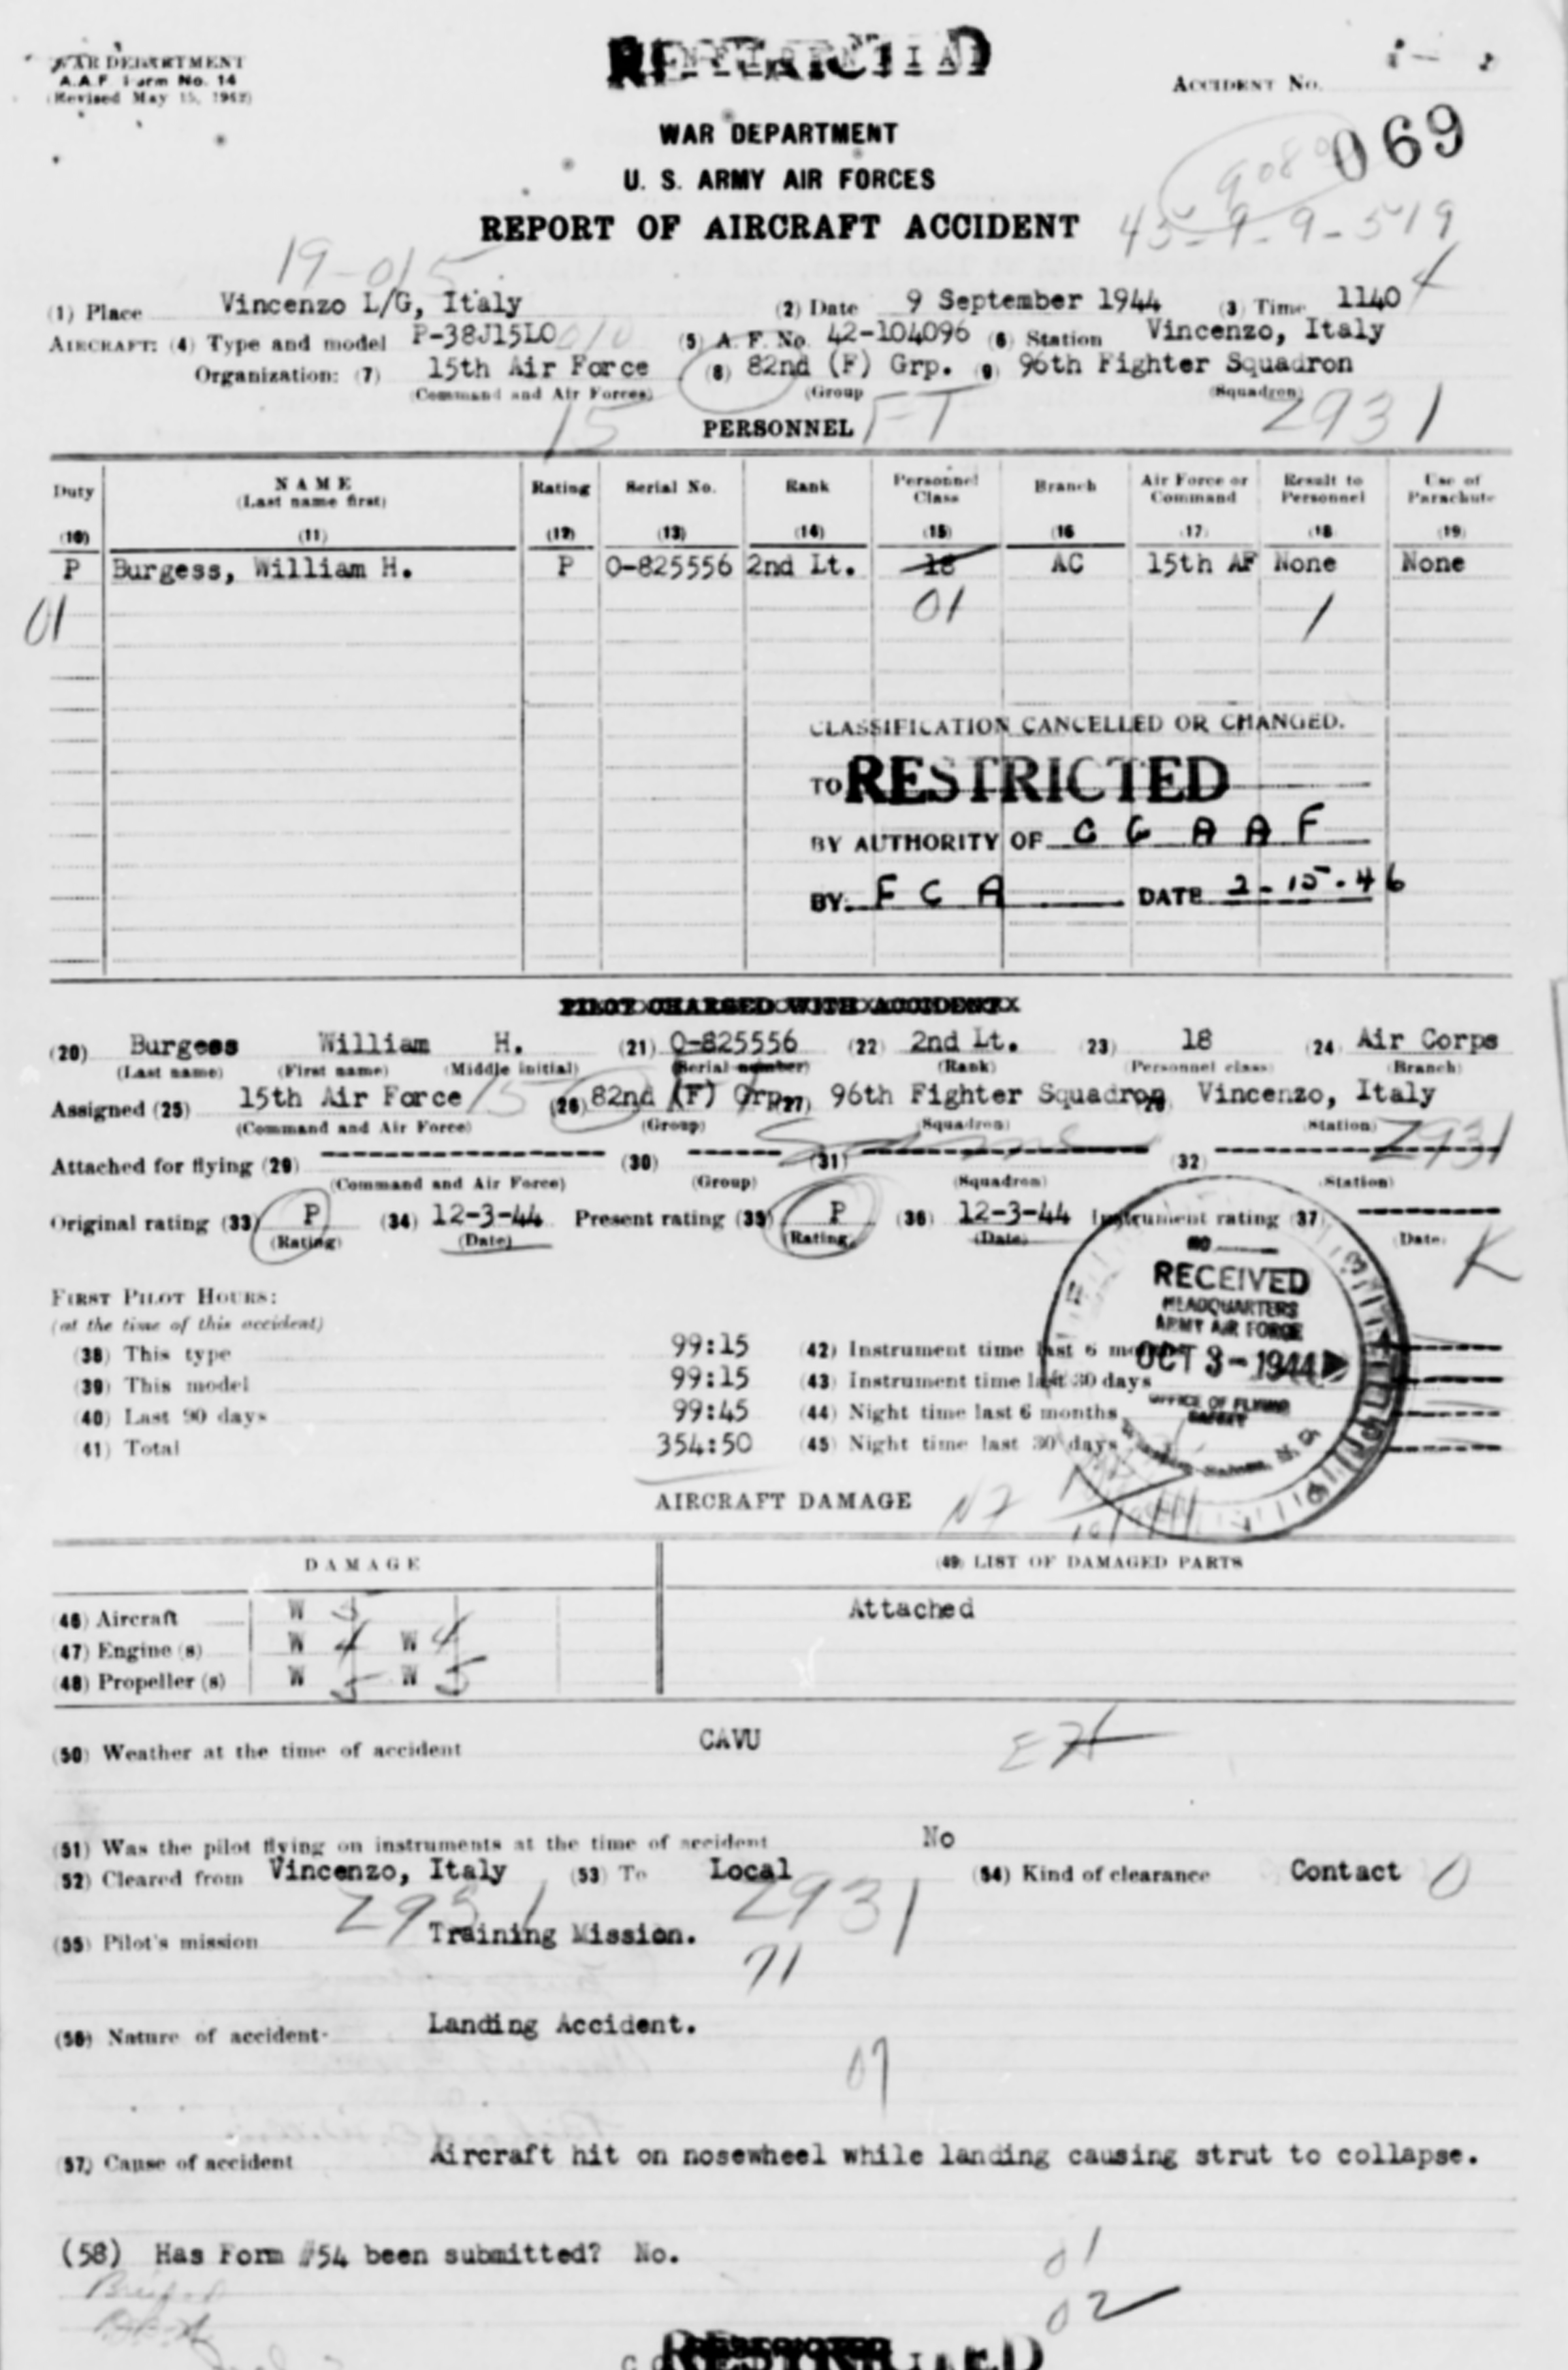 WAR DEPARTMENT
A.A.F. Form No. 14
(Revised May 15, 1942)
ACCIDENT No.
069
WAR DEPARTMENT
U. S. ARMY AIR FORCES
REPORT OF AIRCRAFT ACCIDENT
45-9-9-519
19-015
(1) Place Vincenzo L/G, Italy (2) Date 9 September 1944 (3) Time 1140 4
AIRCRAFT: (4) Type and model P-38J15LO 010 (5) A. F. No. 42-104096 (6) Station Vincenzo, Italy
Organization: (7) 15th Air Force (8) 82nd (F) Grp. (9) 96th Fighter Squadron
(Command and Air Forces) (Group (Squadron)
15 PERSONNEL FT 2931
Duty NAME Rating Serial No. Rank Personnel Class Branch Air Force or Command Result to Personnel Use of Parachute
(Last name first)
(10) (11) (12) (13) (14) (15) (16 (17) (18 (19)
P Burgess, William H. P O-825556 2nd Lt. 18 AC 15th AF None None
01 01 1
CLASSIFICATION CANCELLED OR CHANGED.
TO RESTRICTED
BY AUTHORITY OF C G A A F
BY F C A DATE 2-15-46
PILOT CHARGED WITH ACCIDENT
(20) Burgess William H. (21) O-825556 (22) 2nd Lt. 23) 18 24 Air Corps
(Last name) (First name) (Middle initial) (Serial number) (Rank) (Personnel class) (Branch)
Assigned (25) 15th Air Force 15 (26) 82nd (F) Grp. 27) 96th Fighter Squadron Vincenzo, Italy
(Command and Air Force) (Group) (Squadron) Station) 2931
Attached for flying (29) (30) (31) (32)
(Command and Air Force) (Group) (Squadron) (Station)
Original rating (33) P (34) 12-3-44 Present rating (35) P (36) 12-3-44 Instrument rating (37)
(Rating) (Date) (Rating) (Date) (Date) K
RECEIVED
HEADQUARTERS
ARMY AIR FORCE
OCT 3-1944
OFFICE OF FLYING
SAFETY
FIRST PILOT HOURS:
(at the time of this accident)
(38) This type 99:15 (42) Instrument time last 6 months
(39) This model 99:15 (43) Instrument time last 30 days
(40) Last 90 days 99:45 (44) Night time last 6 months
(41) Total 354:50 (45) Night time last 30 days
AIRCRAFT DAMAGE
DAMAGE (49) LIST OF DAMAGED PARTS
(46) Aircraft W 5 Attached
(47) Engine (s) W 4 W 4
(48) Propeller (s) W 5 W 5
(50) Weather at the time of accident CAVU
(51) Was the pilot flying on instruments at the time of accident No
52) Cleared from Vincenzo, Italy (53) To Local (54) Kind of clearance Contact 0
2931 2931
(55) Pilot's mission Training Mission.
71
(56) Nature of accident Landing Accident.
07
(57) Cause of accident Aircraft hit on nosewheel while landing causing strut to collapse.
(58) Has Form #54 been submitted? No.
01
02